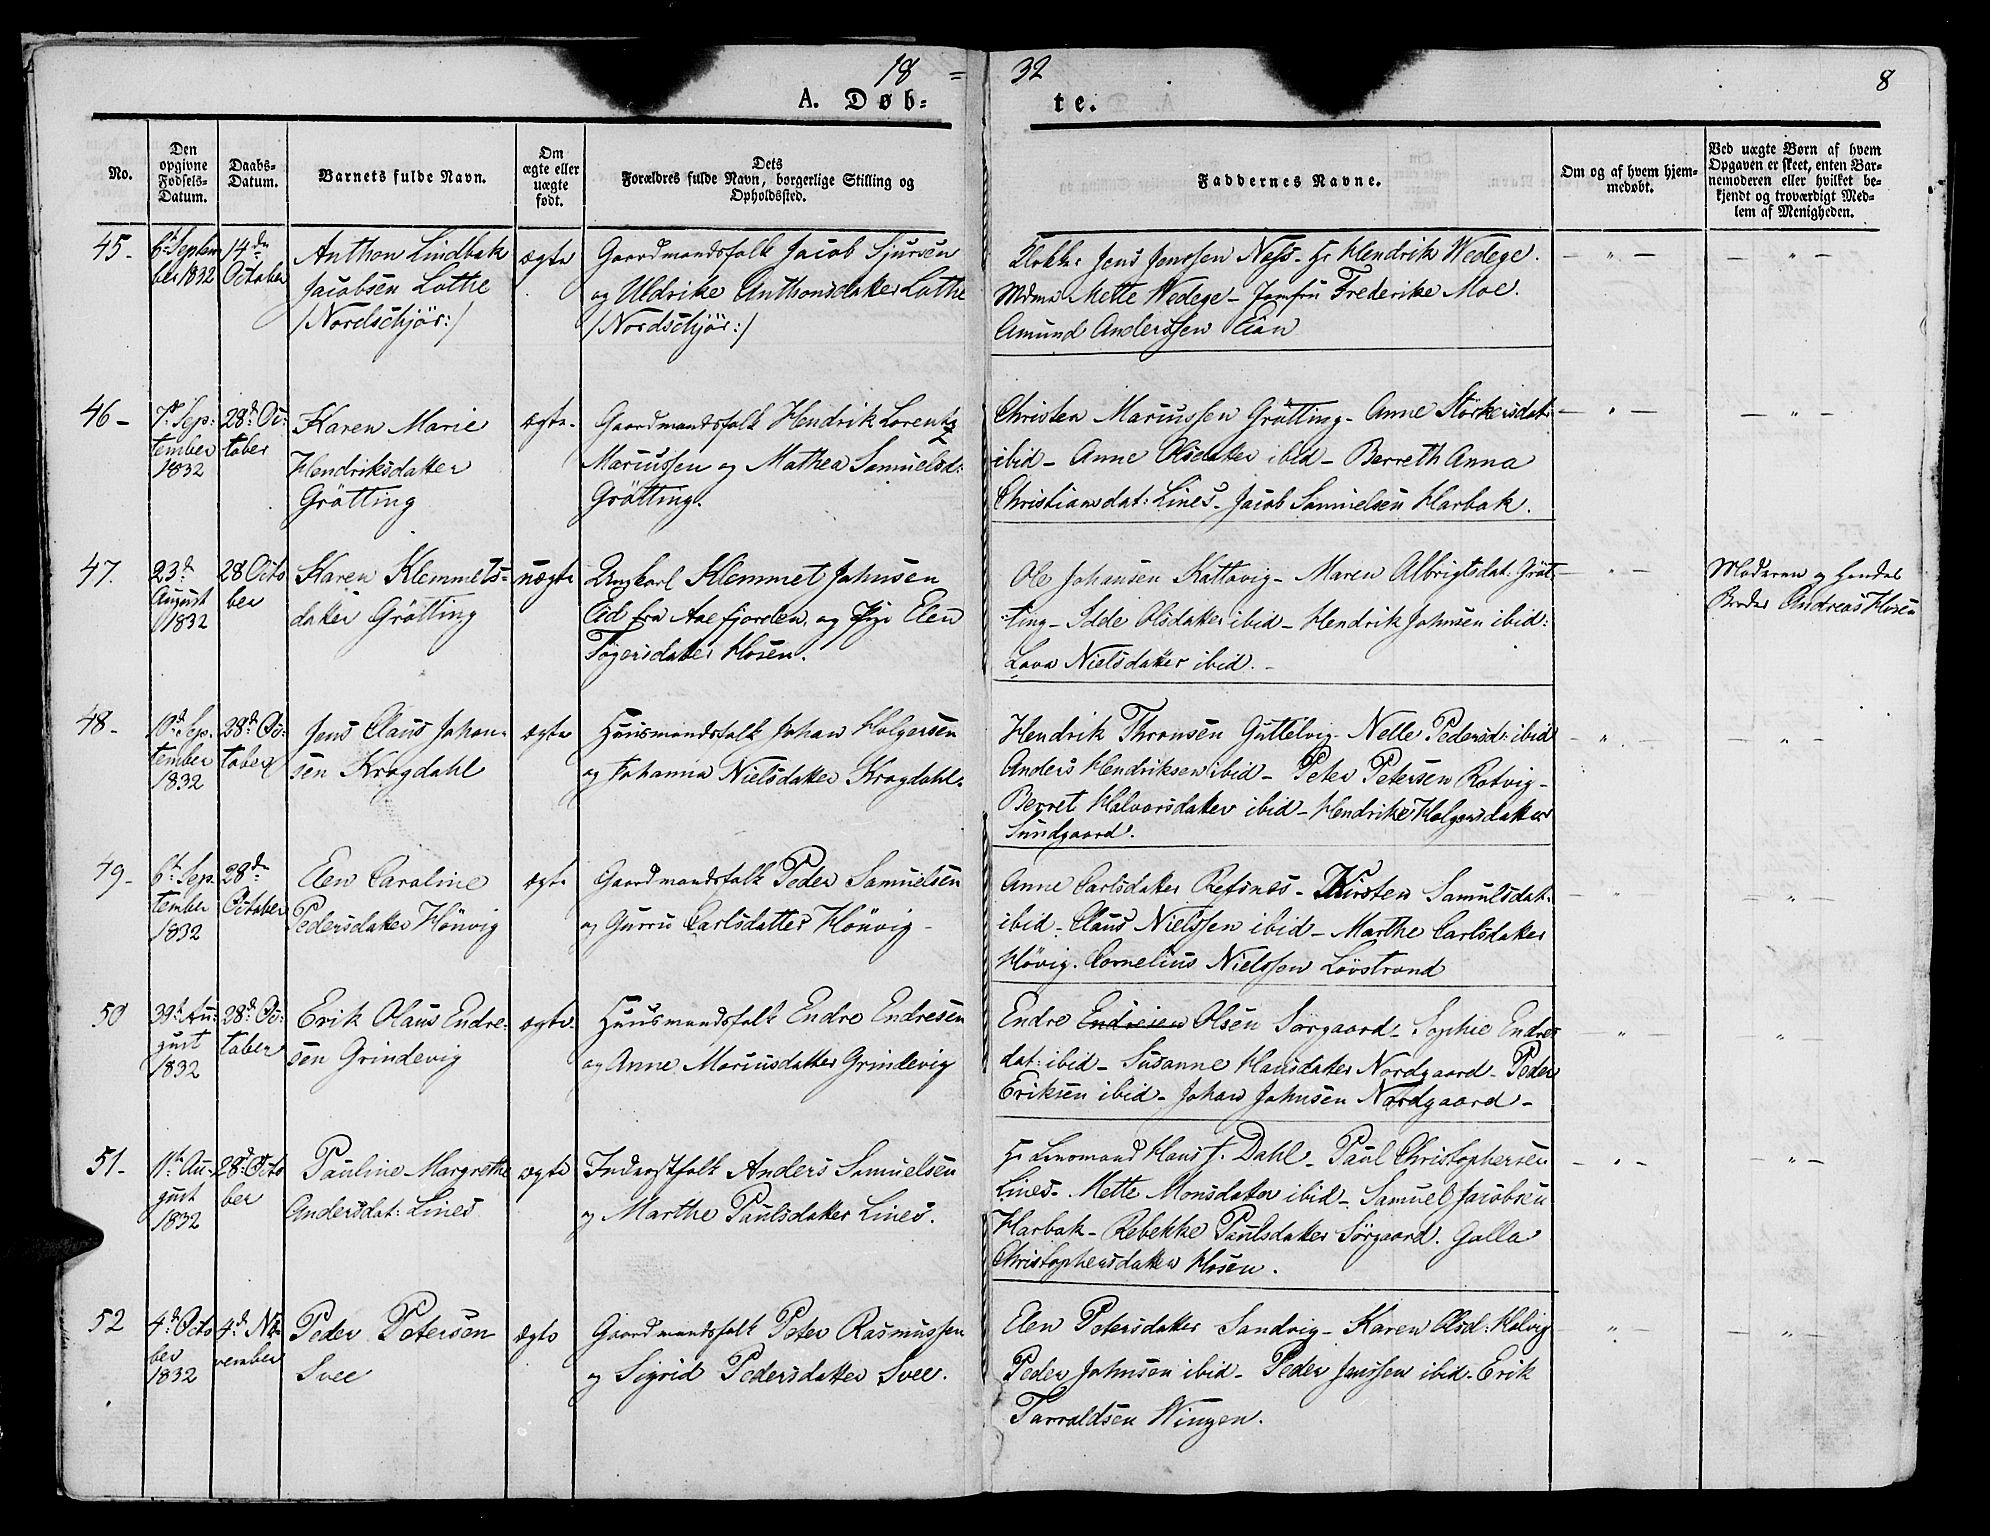 18 = 32
8
A. Døb-
te.
No.
Den opgivne Fødsels-Datum.
Daabs-Datum.
Barnets fulde Navn.
Om ægte eller uægte født.
Dets Forældres fulde Navn, borgerlige Stilling og Opholdssted.
Faddernes Navne.
Om og af hvem hjem-medøbt.
Ved uægte Børn af hvem Opgaven er skeet, enten Bar-nemoderen eller hvilket be-kjendt og troværdigt Med-lem af Menigheden.
45-
6t Septem
ber 1832
14de
October
Anthon Lindbak
Jacobsen Lothe
/Nordschjör:/
ægte
Gaardmandsfolk Jacob Sjursen
og Uldrike Anthonsdatter Lothe
/Nordschjör:/
Klokker Jens Jenssen Næss - Hr Hendrik Wedege.
Mdme Mette Wedege - Jomfru Frederike Moe.
Amund Anderssen Eian
46-
7d Sep:
tember
1832
28d Oc:
tober
Karen Marie
Hendriksdatter
Grötting
ægte-
Gaardmandsfolk Hendrik Lorentz
Mariussen og Mathea Samuelsd:
Grötting.
Christen Mariussen Grötting - Anne Störkersdat:
ibid - Anne Olsdatter ibid - Berreth Anna
Christiansdat: Lines - Jacob Samuelsen Harbak.
47.
23d
August
1832
28 Octo
ber
Karen Klemmets-
datter Grötting
uægte
Ungkarl Klemmet Johnsen
Eid fra Aaefjorden, og Pige Elen
Togersdatter Hosen.
Ole Johansen Kattevig - Maren Albrigtsdat: Gröt-
ting - Idde Olsdatter ibid - Hendrik Johnsen ibid:
Lava Nielsdatter ibid. -
Moderen og hendes
Broder Andreas Hosen
48-
10d Sep.
tember
1832
28d Oc:
tober
Jens Claus Johan-
sen Kragdahl
ægte
Huusmandsfolk Johan Holgersen
og Johanna Nielsdatter Kragdahl.
Hendrik Thronsen Guttelvig - Nelle Pedersd: ibid
Anders Hendriksen ibid - Peter Petersen Ratvig -
Berret Halvorsdatter ibid - Hendrikæ Holgersdatter
Sundgaard.
49-
6t Sep
tember
1832
28d
October
Elen Caroline
Pedersdatter Hönvig
ægte
Gaardmandsfolk Peder Samuelsen
og Gurru Carlsdatter Hönvig -
Anne Carlsdatter Refsnes - Kirsten Samulsdat:
ibid - Claus Nielssen ibid - Marthe Carlsdatter
Hövig. Cornelius Nielssen Lövstrand
50
30t Au:
gust
1832
28d Oc:
tober
Erik Olaus Endre-
sen Grindevig
ægte
Huusmandsfolk Endre Endresen
og Anne Mariusdatter Grindevig
Endre Endresen Olsen Sörgaard - Sophie Endres
dat: ibid - Susanne Hansdatter Nordgaard - Peder
Eriksen ibid - Johan Johnsen Nordgaard -
51-
11t Au:
gust
1832
28d Octo
ber
Pauline Margrethe
Andersdat: Lines
ægte
Inderstfolk Anders Samuelsen
og Marthe Paulsdatter Lines.
Hr Lensmand Hans J. Dahl - Paul Christophersen
Lines - Mette Monsdatter ibid - Samuel Jacobsen
Harbak - Rebekke Paulsdatter Sörgaard. Golla
Christophersdatter Hosen.
52
4d Octo
ber
1832
4d No-
vember
Peder Petersen
Svee
ægte
Gaardmandsfolk Peter Rasmussen
og Sigrid Pedersdatter Svee.
Elen Petersdatter Sandvig - Karen Olsd: Holvig
Peder Johnsen ibid - Peder Jenssen ibid - Erik
Tarraldsen Wingen.